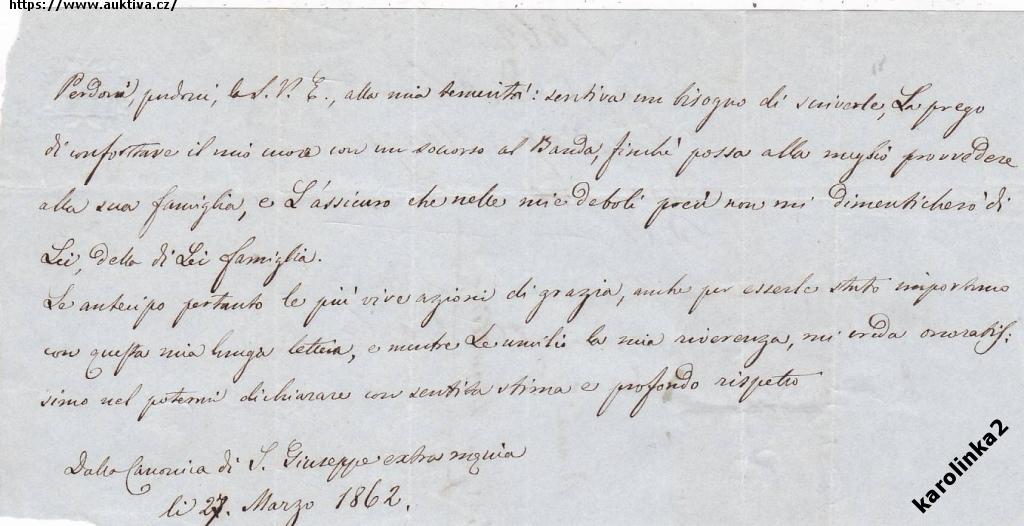 https://www.auktiva.cz/
Perdoni, perdoni, la S. V. E., alla mia temerità: sentiva un bisogno di scriverle, La prego
di confortare il mio cuore con un soccorso al Banda, finchè possa alla meglio provvedere
alla sua famiglia, e L'assicuro che nelle mie deboli preci non mi dimenticherò di
Lei, della di Lei famiglia.
Le antecipo pertanto le più vive azioni di grazia, anche per esserle stato importuno
con questa mia lunga lettera, e mentre Le umilio la mia riverenza, mi creda onoratis:
simo nel potermi dichiarare con sentita stima e profondo rispetto
Dalla Canonica di S. Giuseppe extra
li 27. Marzo 1862.
karolinka2